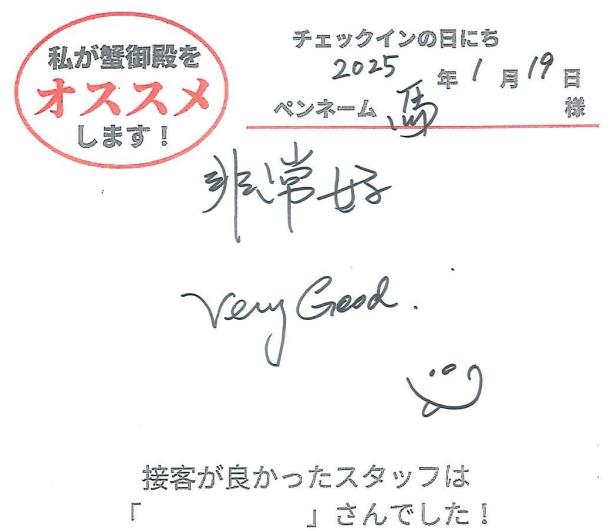 私が蟹御殿を
オススメ
します！
チェックインの日にち
2025年1月19日
ペンネーム 馬 様
非常好
Very Good.
接客が良かったスタッフは
「 」さんでした！